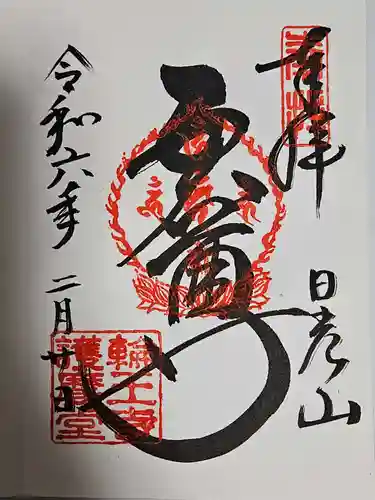 奉拝
日光山
五大尊
令和六年 二月廿日
輪王寺
護摩堂